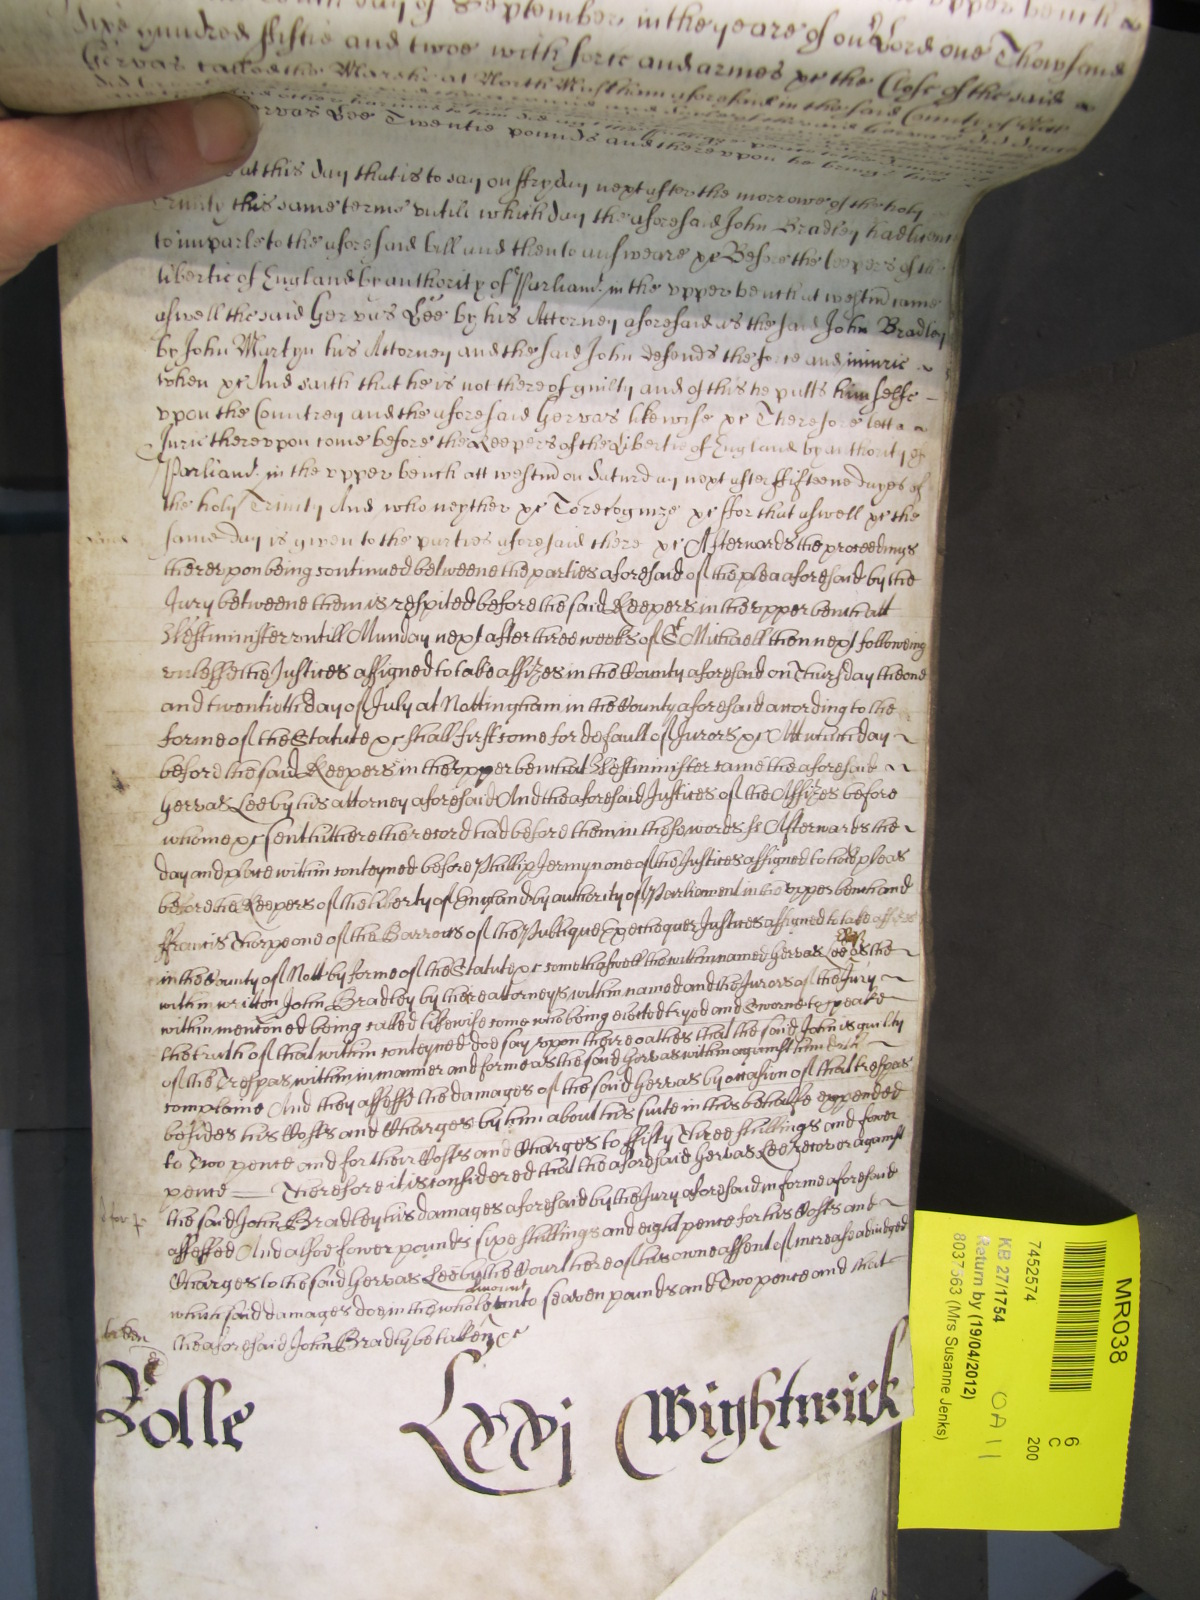 day of September in the yeare of our Lord one Thowsand
sixe hundred fiftie and twoe with force and armes &c the Close of the said
Gervas called the Marshe at North Muskham aforesaid in the said County of Nott
Gervas Lee Twentie pounds and thereupon he brings
at this day that is to say on ffryday next after the morrowe of the holy
Trinity this same terme untill which day the aforesaid John Bradley had licence
to imparle to the aforesaid bill and then to answeare &c Before the keepers of the
libertie of England by authority of Parliamt in the upper bench at westm came
aswell the said Gervas Lee by his Attorney aforesaid as the said John Bradley
by John Martyn his Attorney and the said John defends the force and iniurie
when &c And saith that he is not thereof guilty and of this he putts himselfe
upon the Countrey and the aforesaid Gervas likewise &c Therefore lett a
Jurie thereupon come before the Keepers of the Libertie of England by authority of
Parliamt in the upper bench att westm on Saturday next after ffifteene dayes of
the holy Trinity And who neyther &c To recognize &c ffor that aswell &c the
same day is given to the parties aforesaid there &c Afterwards the proceedings
thereupon being continued betweene the parties aforesaid of the plea aforesaid by the
Jury betweene them is respited before the said Keepers in the upper bench att
Westminister untill Munday next after three weeks of St Michaell then next following
unlesse the Justices assigned to take assizes in the County aforesaid on Thursday the one
and twentieth day of July at Nottingham in the County aforesaid according to the
forme of the Statute &c shall first come for default of Jurors &c Att which day
before the said Keepers in the upper bench at Westminister came the aforesaid
Gervas Lee by his attorney aforesaid And the aforesaid Justices of the Assizes before
whome &c sent hither the record had before them in these words ss Afterwards the
day and place within conteyned before Phillip Jermyn one of the Justices assigned to hold pleas
before the Keepers of the liberty of England by authority of Parliament in the upper bench and
ffrancis Thorpe one of the Barrons of the Publique Exchequer Justices assigned to take assizes
in the County of Nott by forme of the Statute &c cometh aswell the within named Gervas Lee as the
within written John Bradley by there attorneys within named and the Jurors of the Jury
within mentioned being called likewise come who being elected tryed and Sworne to speake
the truth of that within conteyned doe say upon theire oathes that the said John is guilty
of the Trespas within in manner and forme as the said Gervas within against him doth
complaine And they assesse the damages of the said Gervas by occasion of that trespas
besides his Costs and Charges by him about his suite in this behalfe expended
to Two pence and for their Costs and Charges to ffifty Three shillings and fower
pence Therefore it is considered that the aforesaid Gervas Lee recover against
the said John Bradley his damages aforesaid by the Jury aforesaid in forme aforesaid
assessed And alsoe fower pounds sixe shillings and eight pence for his Costs and
Charges to the said Gervas Lee by the Court here of his owne assent of increase adiudged
which said damages doe in the whole amount unto seaven pounds and Two pence and that
the aforesaid John Bradly be taken &c
Rolle Lxxj Wightwick
MR038
6
C
200
7452574
KB 27/1754
Return by (19/04/2012)
8037563 (Mrs Susanne Jenks)